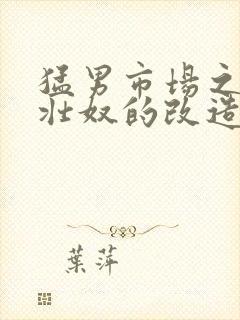 猛男市場之
壯奴的改造
葉萍